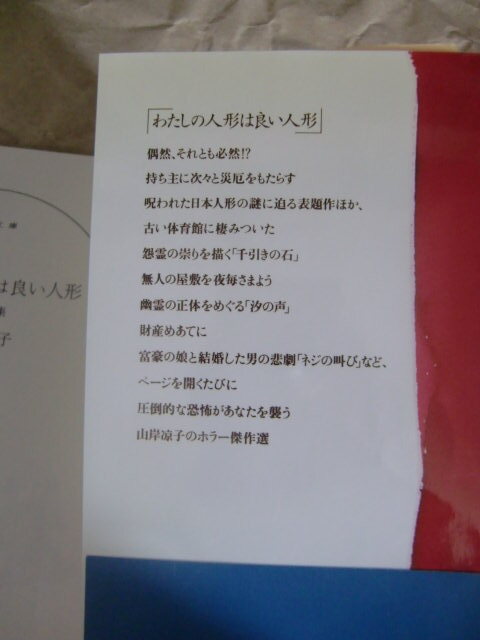 「わたしの人形は良い人形」
偶然、それとも必然!?
持ち主に次々と災厄をもたらす
呪われた日本人形の謎に迫る表題作ほか、
古い体育館に棲みついた
怨霊の祟りを描く「千引きの石」
無人の屋敷を夜毎さまよう
幽霊の正体をめぐる「汐の声」
財産めあてに
富豪の娘と結婚した男の悲劇「ネジの叫び」など、
ページを開くたびに
圧倒的な恐怖があなたを襲う
山岸凉子のホラー傑作選
文庫
は良い人形
集
子